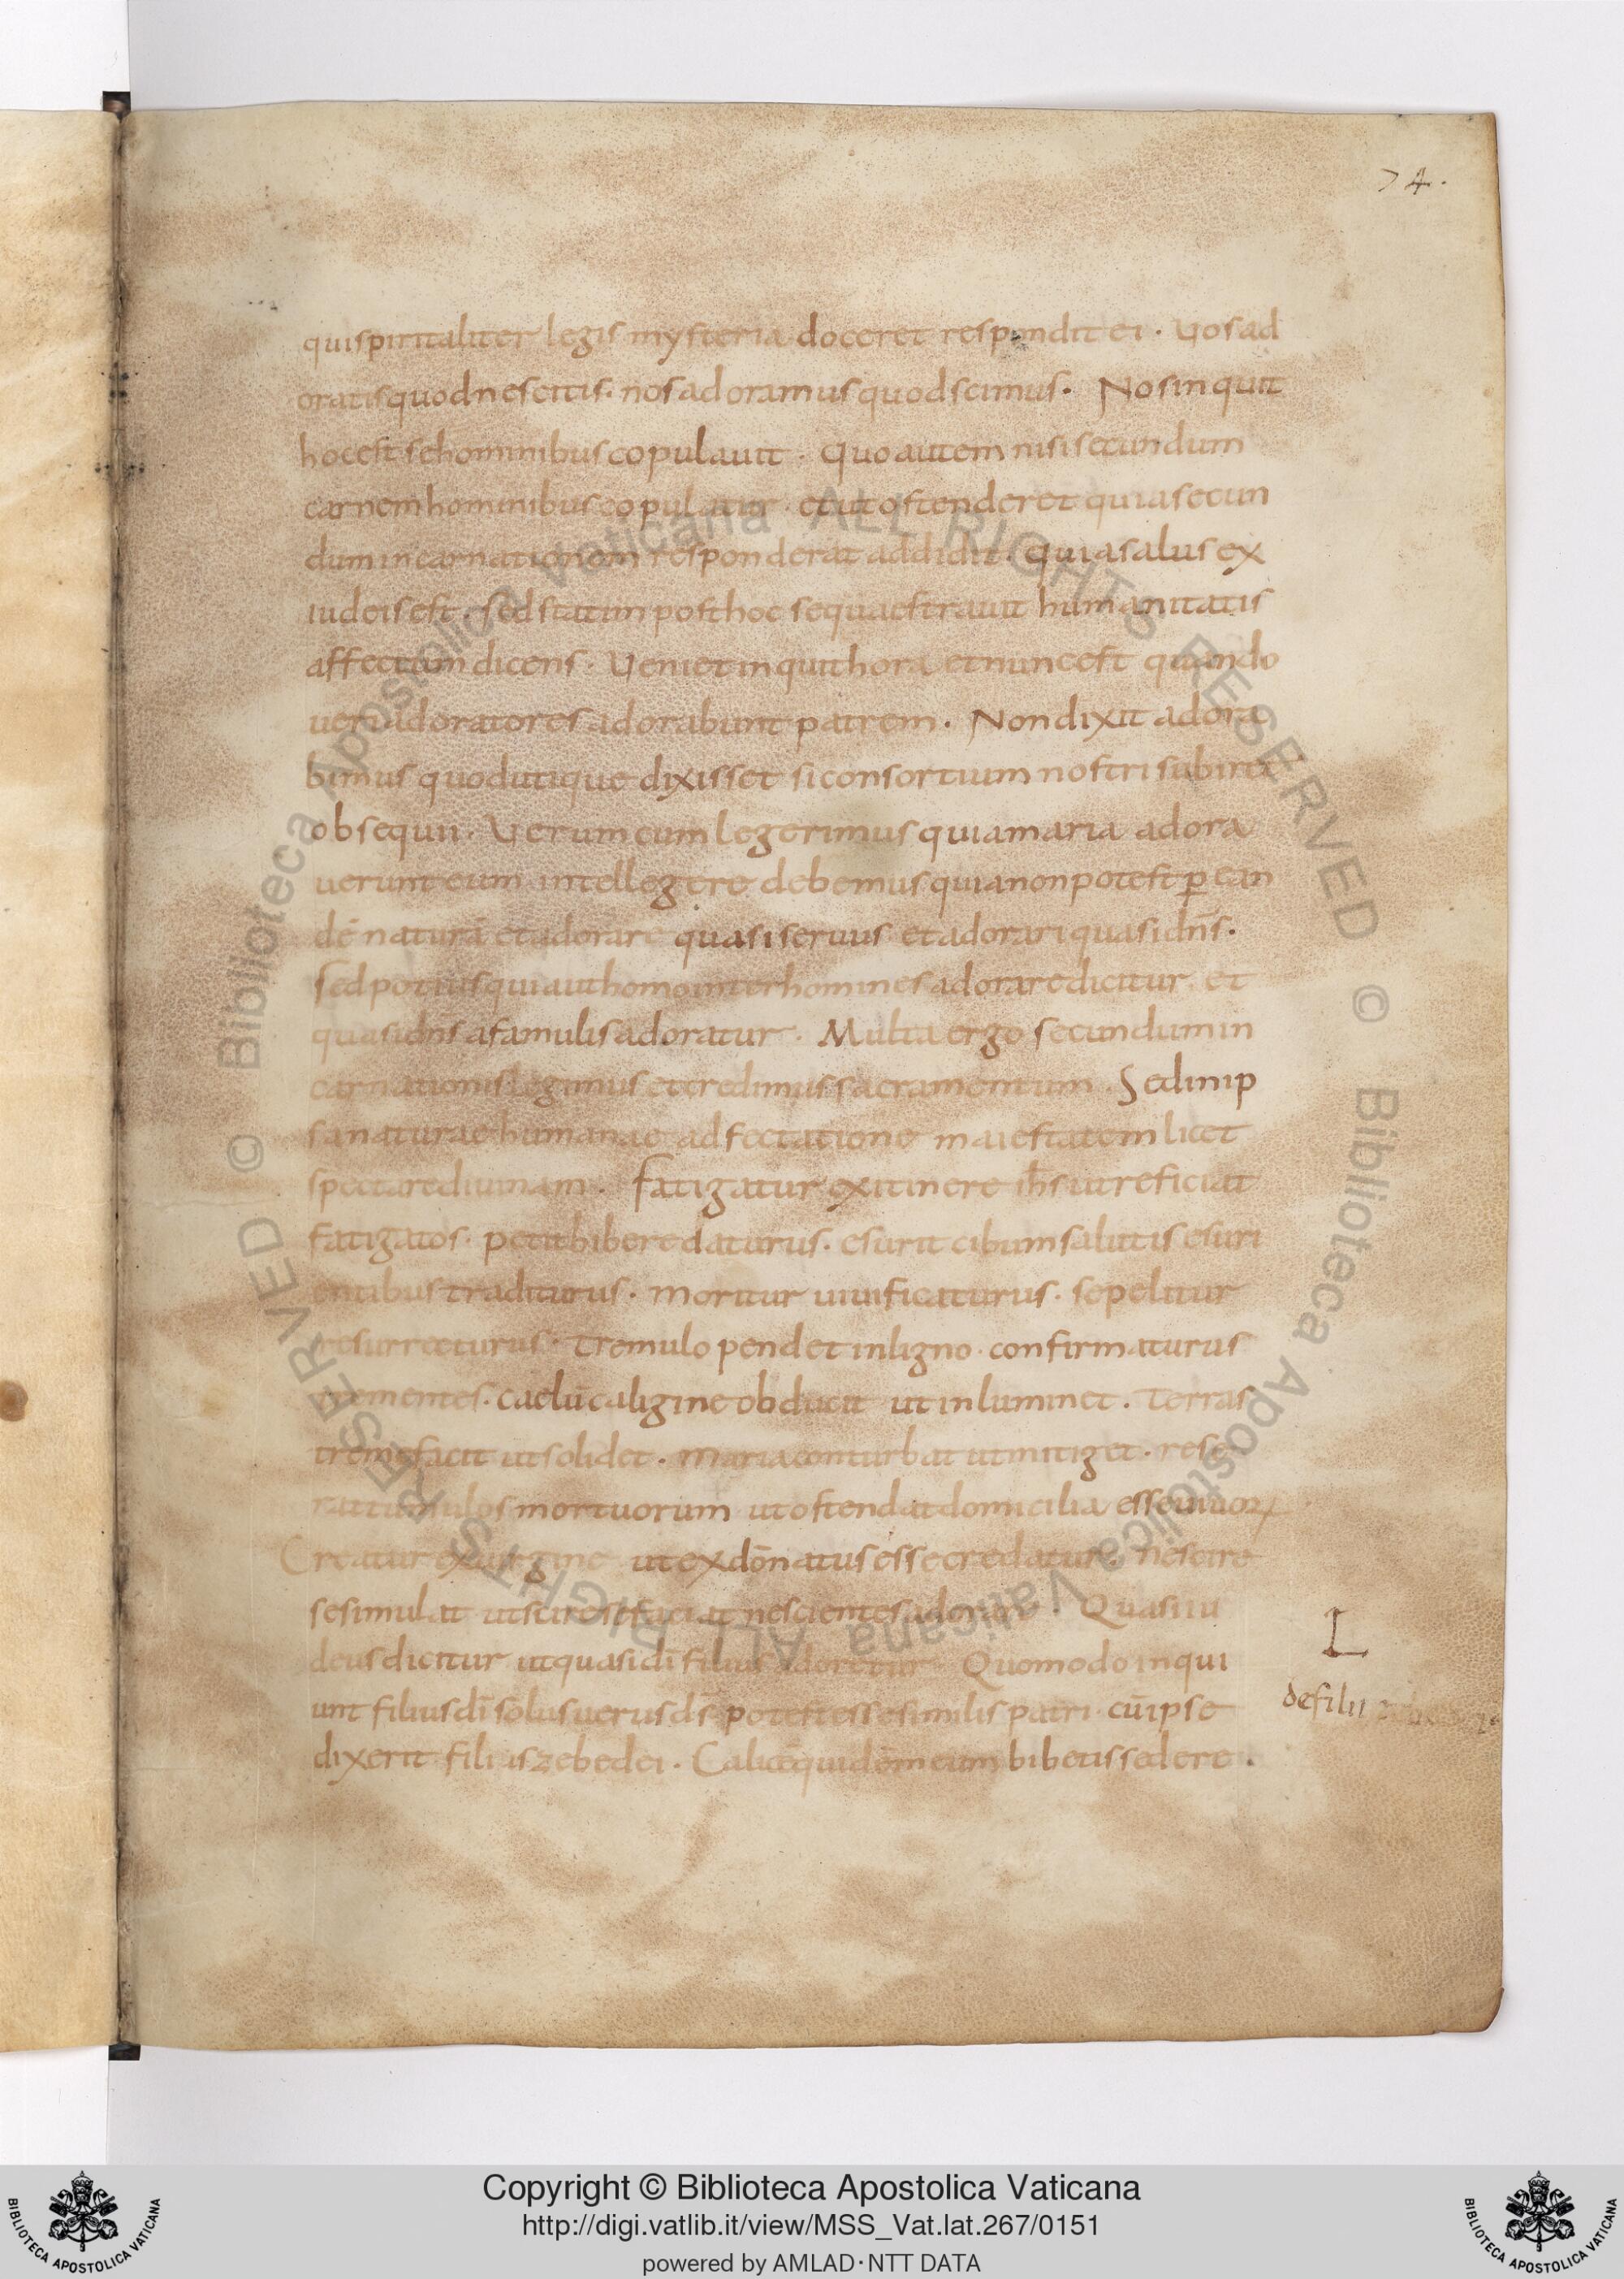 74.
qui spiritaliter legis mysteria doceret respondit ei. Vos ad
oratis quod nescitis. nos adoramus quod scimus. Nos inquit
hoc est se hominibus copulauit. Quo autem nisi secundum
carnem hominibus copulatur. et ut ostenderet quia secun
dum incarnationem responderat addidit. quia salus ex
iudeis est. sed statim post hoc sequaestrauit humanitatis
affectum dicens. Veniet inquit hora et nunc est quando
ueri adoratores adorabunt patrem. Non dixit adora
bimus quod utique dixisset si consortium nostri subiret
obsequii. Verum cum legerimus quia maria adora
uerunt eum intellegere debemus quia non potest ꝑ ean
dē naturā et adorare quasi seruus et adorari quasi dn̄s.
Sed potius quia ut homo inter homines adorare dicitur. et
quasi dn̄s a famulis adoratur. Multa ergo secundum in
carnationis legimus et credimus sacramentum. Sed in ip
sa naturae humanae adfectatione maiestatem licet
spectare diuinam. Fatigatur ex itinere ih̄s ut reficiat
fatigatos. petit bibere daturus. esurit cibum salutis esuri
entibus traditurus. moritur uiuificaturus. sepelitur
resurrecturus. Tremulo pendet in ligno confirmaturus
trementes. caelū caligine obducit ut inluminet. Terras
tremefacit ut solidet. maria conturbat ut mitiget. rese
rat tumulos mortuorum ut ostendat domicilia esse uiuoꝝ
Creatur ex uirgine ut ex dō natus esse credatur. nescire
se simulat ut scire se faciat nescientes adorare. Quasi iu
deus dicitur ut quasi dī filius adoretur. Quomodo inqui
L
unt filius dī solus uerus dš potest esse similis patri. cū ipse
de filii
dixerit filiis zebedei. Calicē quidem meum bibetis sedere.
Copyright © Biblioteca Apostolica Vaticana
http://digi.vatlib.it/view/MSS_Vat.lat.267/0151
powered by AMLAD·NTT DATA
BIBLIOTECA APOSTOLICA VATICANA
BIBLIOTECA APOSTOLICA VATICANA
© Biblioteca Apostolica Vaticana ALL RIGHTS RESERVED
© Biblioteca Apostolica Vaticana ALL RIGHTS RESERVED